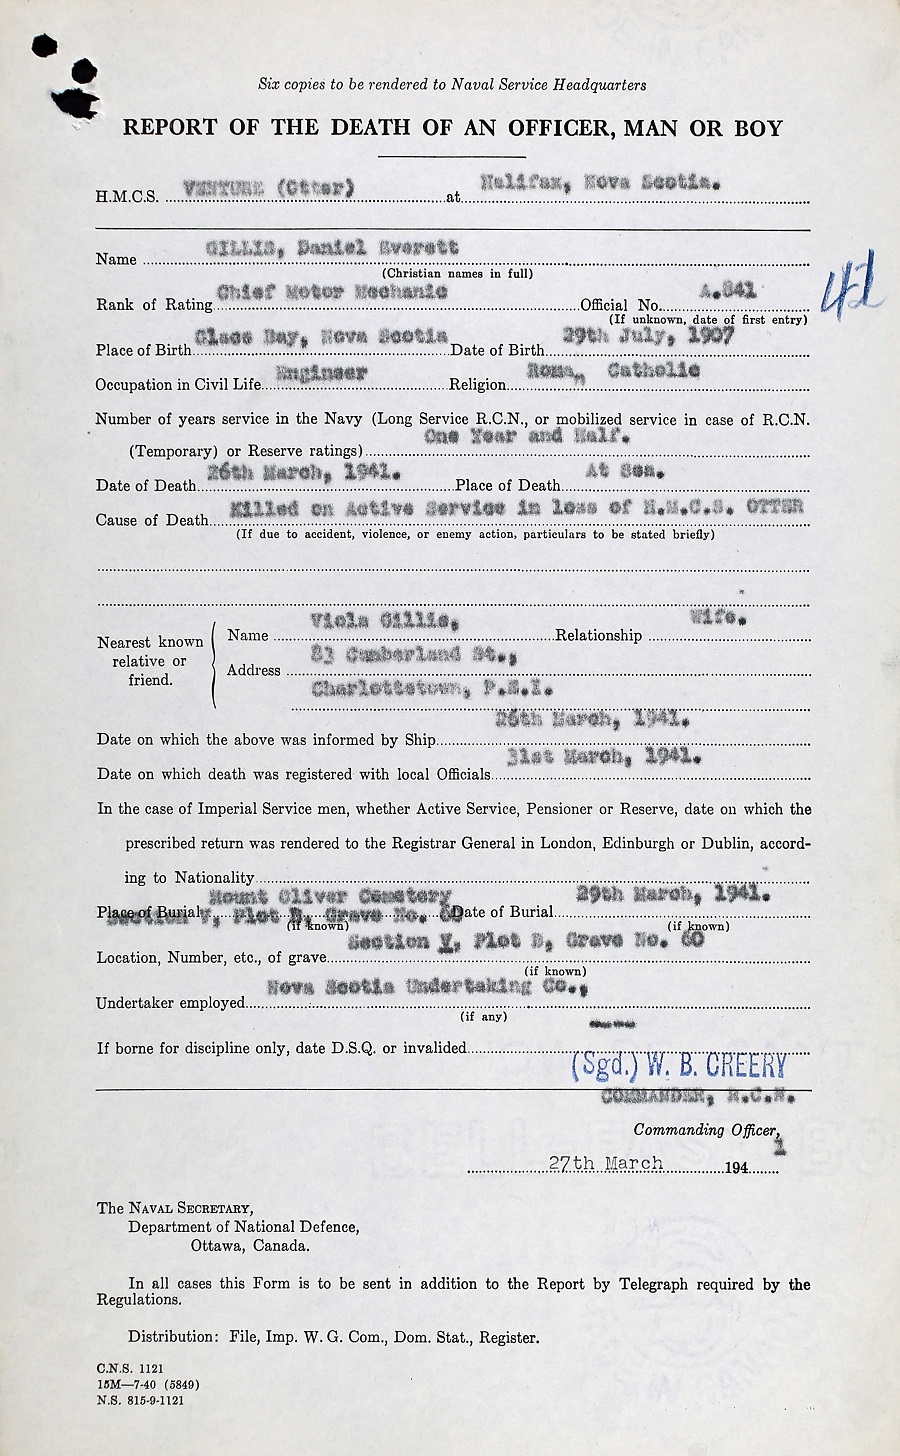 Six copies to be rendered to Naval Service Headquarters
REPORT OF THE DEATH OF AN OFFICER, MAN OR BOY
H.M.C.S. VENTURE (Otter) at Halifax, Nova Scotia.
Name GILLIS, Daniel Everett
(Christian names in full)
41
Rank of Rating Chief Motor Mechanic Official No. A.841
(If unknown, date of first entry)
Place of Birth Glace Bay, Nova Scotia Date of Birth 29th July, 1907
Occupation in Civil Life Engineer Religion Roman Catholic
Number of years service in the Navy (Long Service R.C.N., or mobilized service in case of R.C.N.
(Temporary) or Reserve ratings) One Year and Half.
Date of Death 26th March, 1941. Place of Death At Sea.
Cause of Death Killed on Active Service in loss of H.M.C.S. OTTER
(If due to accident, violence, or enemy action, particulars to be stated briefly)
Nearest known relative or friend.
Name Viola Gillis, Relationship Wife.
Address 83 Cumberland St.,
Charlottetown, P.E.I.
Date on which the above was informed by Ship 26th March, 1941.
Date on which death was registered with local Officials 31st March, 1941.
In the case of Imperial Service men, whether Active Service, Pensioner or Reserve, date on which the
prescribed return was rendered to the Registrar General in London, Edinburgh or Dublin, accord-
ing to Nationality
Mount Oliver Cemetery
Place of Burial Section V, Plot D, Grave No. 60 Date of Burial 29th March, 1941.
(if known) (if known)
Location, Number, etc., of grave Section V, Plot D, Grave No. 60
(if known)
Undertaker employed Nova Scotia Undertaking Co.,
(if any)
If borne for discipline only, date D.S.Q. or invalided
(Sgd.) W. B. CREERY
COMMANDER, R.C.N.
Commanding Officer,
27th March 1941
The NAVAL SECRETARY,
Department of National Defence,
Ottawa, Canada.
In all cases this Form is to be sent in addition to the Report by Telegraph required by the
Regulations.
Distribution: File, Imp. W. G. Com., Dom. Stat., Register.
C.N.S. 1121
15M—7-40 (5849)
N.S. 815-9-1121